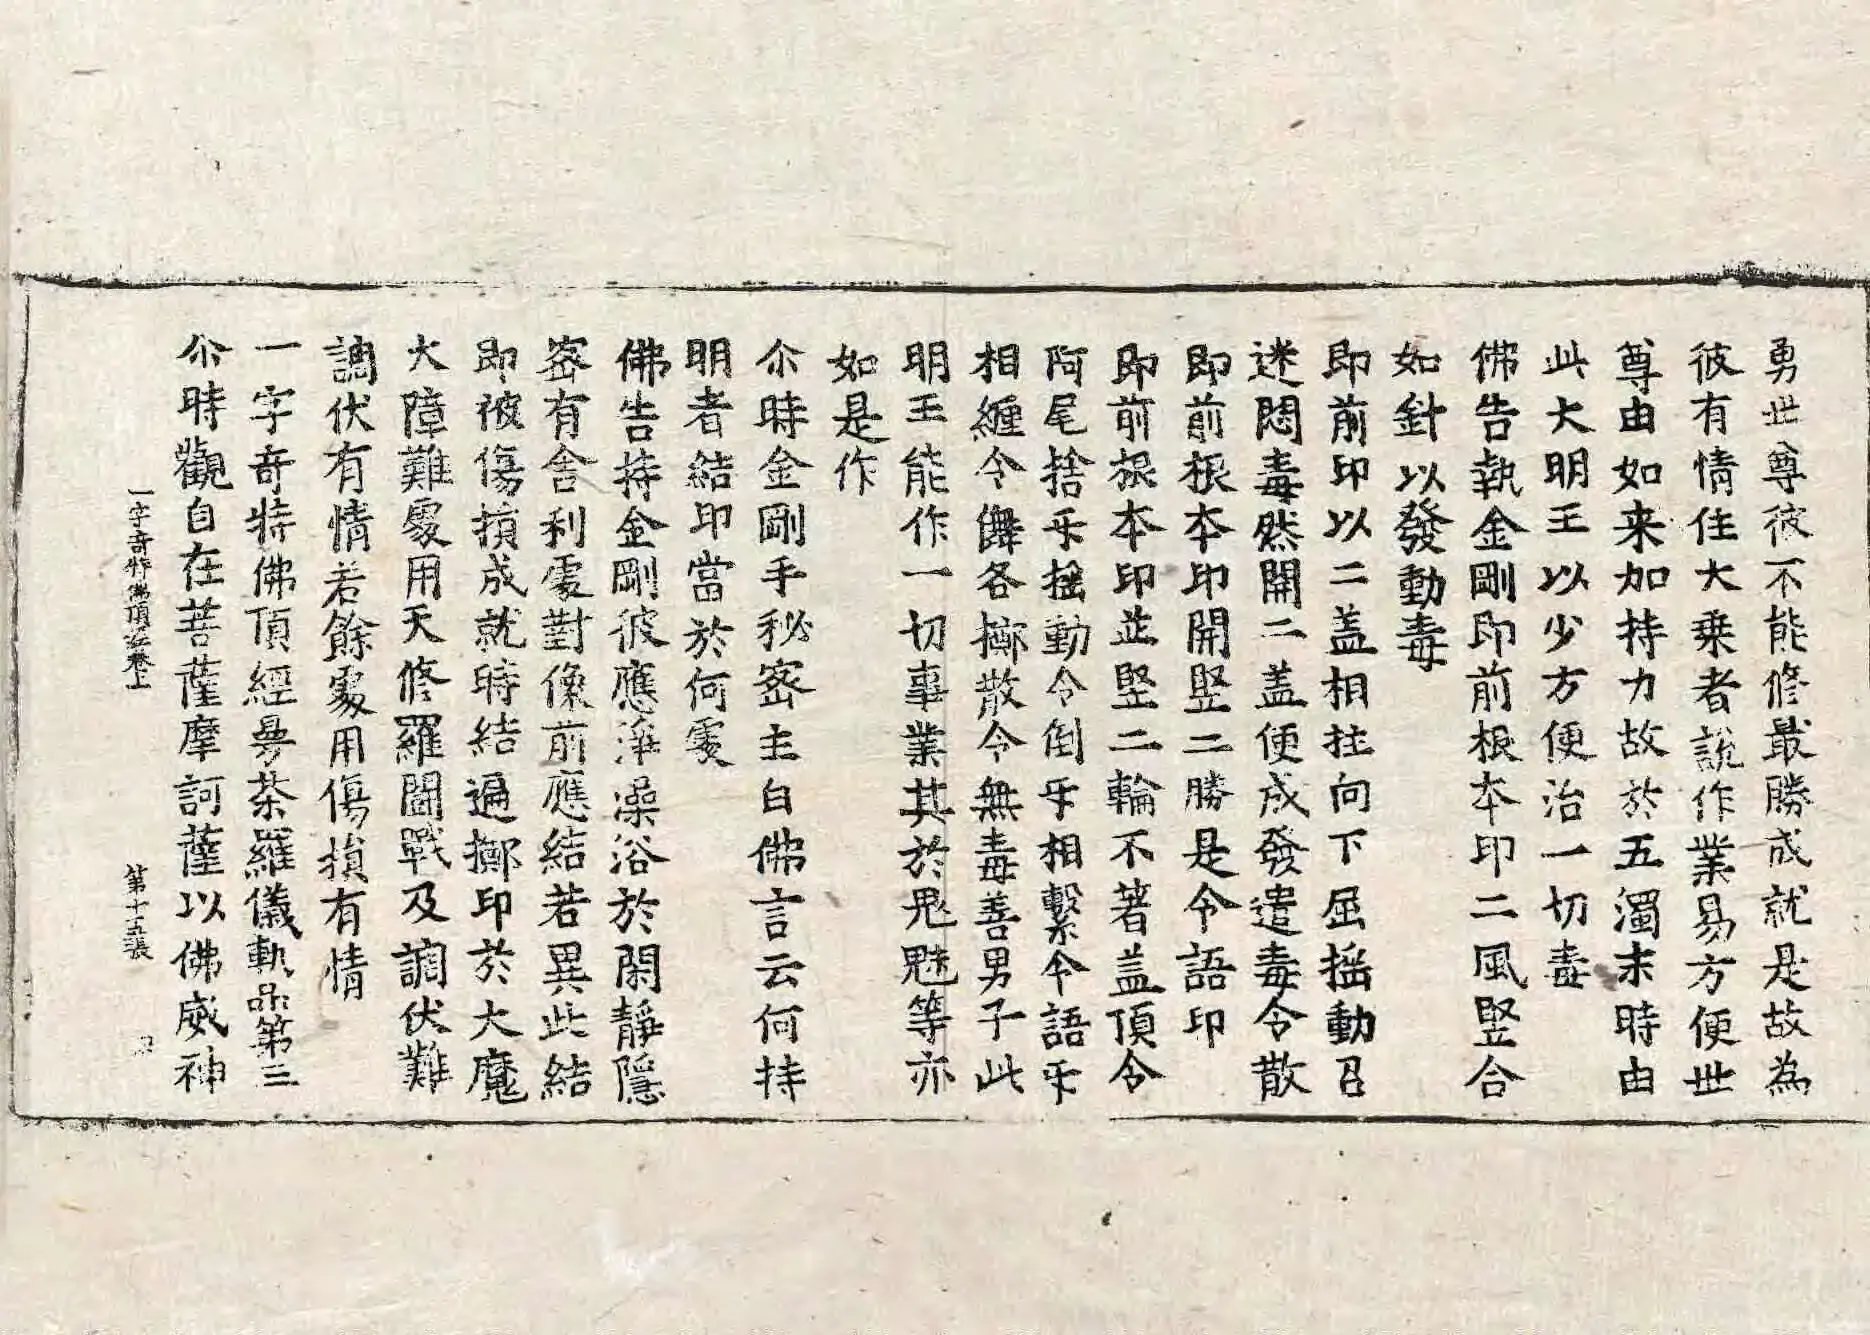 勇世尊彼不能修最勝成就是故為
彼有情住大乗者說作業易方便世
尊由如来加持力故於五濁末時由
此大明王以少方便治一切毒
佛告執金剛即前根本印二風竪合
如針以發動毒
即前印以二盖相拄向下屈揺動召
迷悶毒然開二盖便成發遣毒令散
即前根本印開竪二勝是令語印
即前根本印並竪二輪不著盖頂令
阿尾捨乎揺動令倒乎相繫令語乎
相纏令儛各擲散令無毒善男子此
明王能作一切事業其於鬼魅等亦
如是作
尒時金剛手秘密主白佛言云何持
明者結印當於何處
佛告持金剛彼應淨澡浴於閑靜隱
密有舍利處對像前應結若異此結
即被傷損成就時結遍擲印於大魔
大障難處用天修羅鬪戰及調伏難
調伏有情若餘處用傷損有情
一字竒特佛頂經曼荼羅儀軌品第三
尒時觀自在菩薩摩訶薩以佛威神
一字竒特佛頂經卷上　第十五張